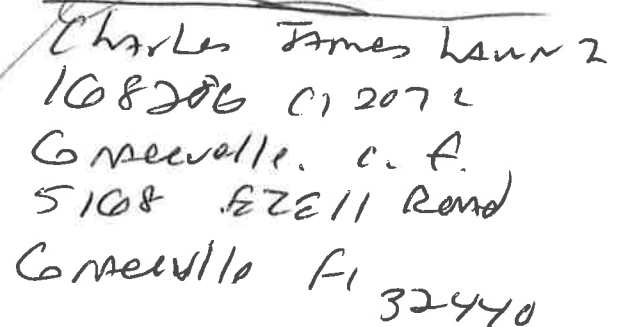 Charles James Lawn 2
168206 C1 207 L
Graceville. C. F.
5168 EZEll Road
Graceville Fl
32440